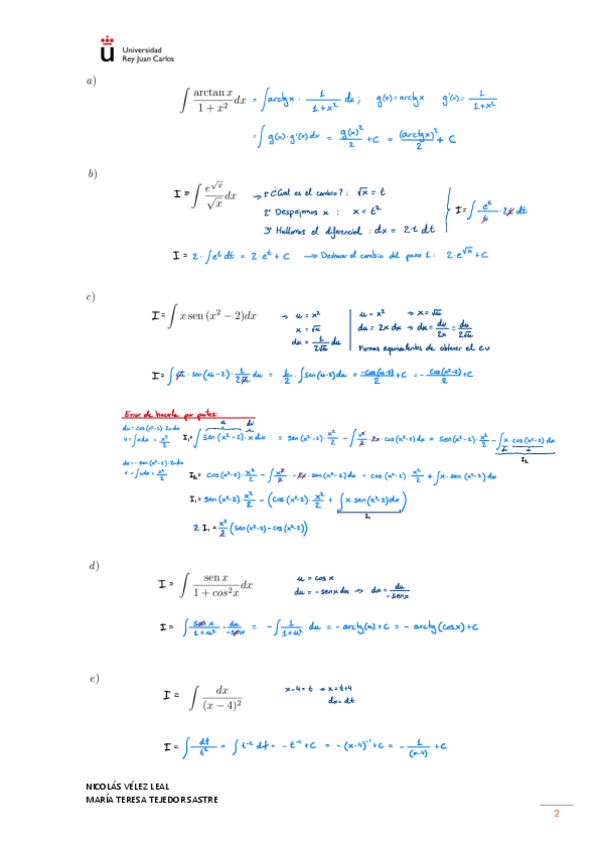 Universidad
Rey Juan Carlos
a)
∫ arctan x / (1 + x²) dx = ∫ arctg x · 1/(1+x²) dx ; g(x) = arctg x g'(x) = 1/(1+x²)
= ∫ g(x) · g'(x) dx = g(x)²/2 + C = (arctg x)²/2 + C
b)
I = ∫ e^√x / √x dx → 1º ¿Cuál es el cambio? : √x = t
2º Despejamos x : x = t²
3º Hallamos el diferencial : dx = 2·t dt
I = ∫ e^t / t · 2t dt
I = 2 · ∫ e^t dt = 2·e^t + C → Deshacer el cambio del paso 1 : 2·e^√x + C
c)
I = ∫ x sen (x² − 2)dx → u = x² u = x² → x = √u
x = √u du = 2x dx → dx = du/2x = du/2√u
dx = 1/2√u du Formas equivalentes de obtener el CV
I = ∫ √u · sen(u−2) · 1/2√u du = 1/2 · ∫ sen(u−2) du = −cos(u−2)/2 + C = − cos(x²−2)/2 + C
Error de hacerla por partes:
du = cos(x²−2)·2x dx
v = ∫ x dx = x²/2 I₁ = ∫ sen(x²−2) · x dx = sen(x²−2) · x²/2 − ∫ x²/2 · 2x · cos(x²−2) dx = sen(x²−2) · x²/2 − ∫ x cos(x²−2) dx
I₂
du = − sen(x²−2)·2x dx
v = ∫ x dx = x²/2 I₂ = cos(x²−2) · x²/2 − ∫ x²/2 · −2x · sen(x²−2) dx = cos(x²−2) · x²/2 + ∫ x · sen(x²−2) dx
I₁ = sen(x²−2) · x²/2 − (cos(x²−2) · x²/2 + ∫ x sen(x²−2) dx)
I₁
2·I₁ = x²/2 (sen(x²−2) − cos(x²−2))
d)
I = ∫ sen x / (1 + cos²x) dx u = cos x
du = − sen x dx → dx = du/−sen x
I = ∫ sen x/(1+u²) · du/−sen x = − ∫ 1/(1+u²) du = − arctg(u) + C = − arctg(cos x) + C
e)
I = ∫ dx / (x − 4)² x−4 = t → x = t+4
dx = dt
I = ∫ dt/t² = ∫ t⁻² dt = − t⁻¹ + C = − (x−4)⁻¹ + C = − 1/(x−4) + C
NICOLÁS VÉLEZ LEAL
MARÍA TERESA TEJEDOR SASTRE
2